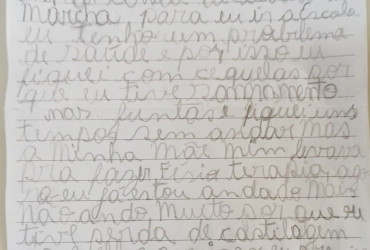 marcha, para eu ir a escola
eu tenho um problema
de saúde e por isso eu
fiquei com cequelas por
que eu tive rompimento
nas juntas e fiquei uns
tempos sem andar mas
a minha mãe mim levava
pra fazer fisio terapia, ago
ra eu já estou andado mais
não ando muito por que eu
tive perda de castilagem